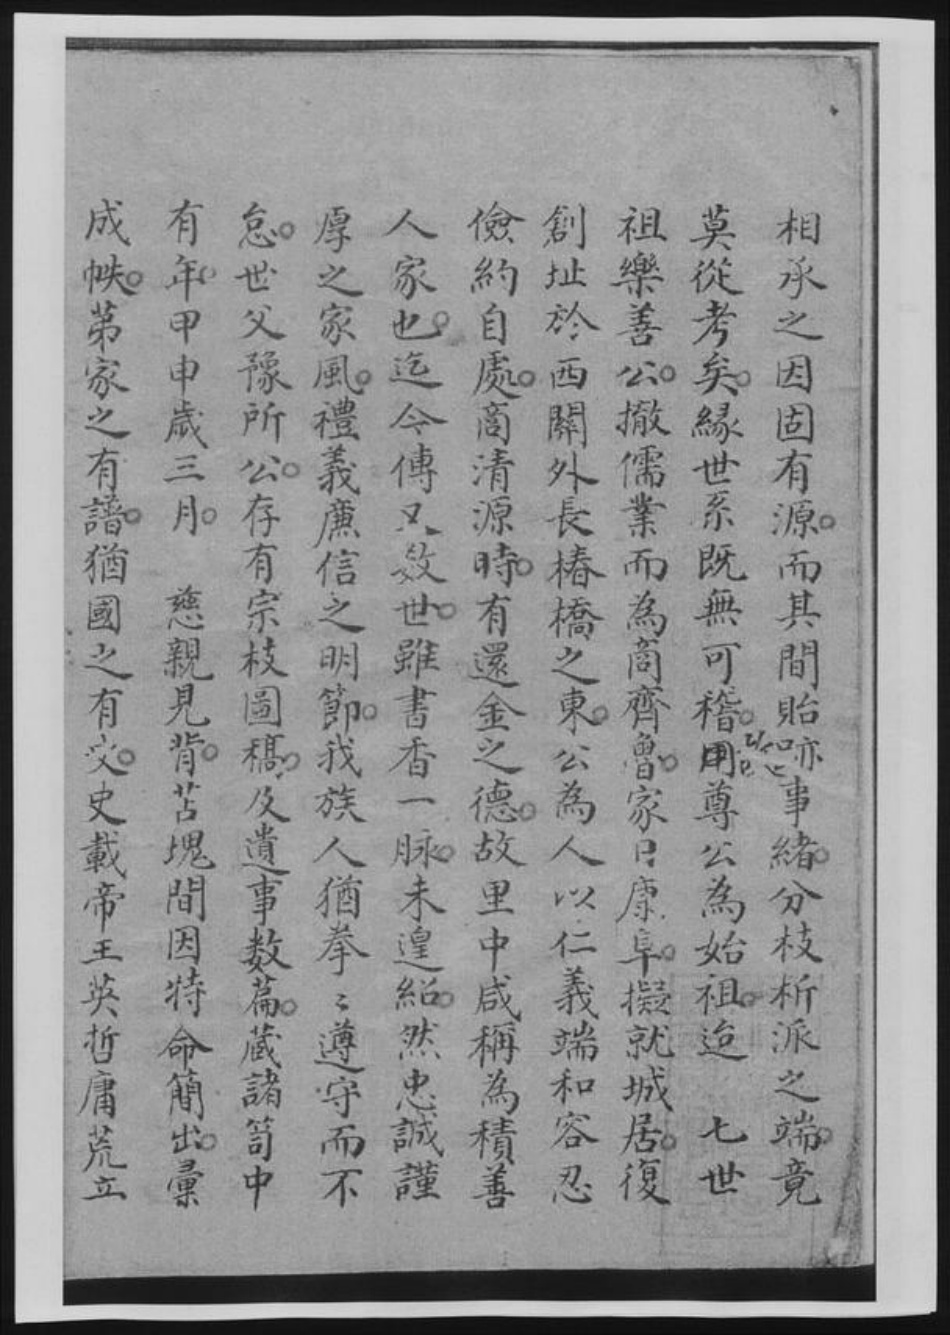 相承之因固有源。而其間貽跡事緒。分枝析派之端。竟
莫從考矣。緣世系既無可稽。用尊公為始祖。迨　七世
祖樂善公。撤儒業而為商齊魯。家日康阜。擬就城居。復
創址於西關外長椿橋之東。公為人以仁義端和容忍
儉約自處。商清源時。有還金之德。故里中咸稱為積善
人家也。迄今傳又數世。雖書香一脉。未遑紹。然忠誠謹
厚之家風。禮義廉信之明節。我族人猶拳〻遵守而不
怠。世父豫所公。存有宗枝圖稿。及遺事数篇。蔵諸笥中
有年。甲申歲三月。　慈親見背。苫塊間因特命簡出。彙
成帙。苐家之有譜。猶國之有史。史載帝王英哲庸荒立